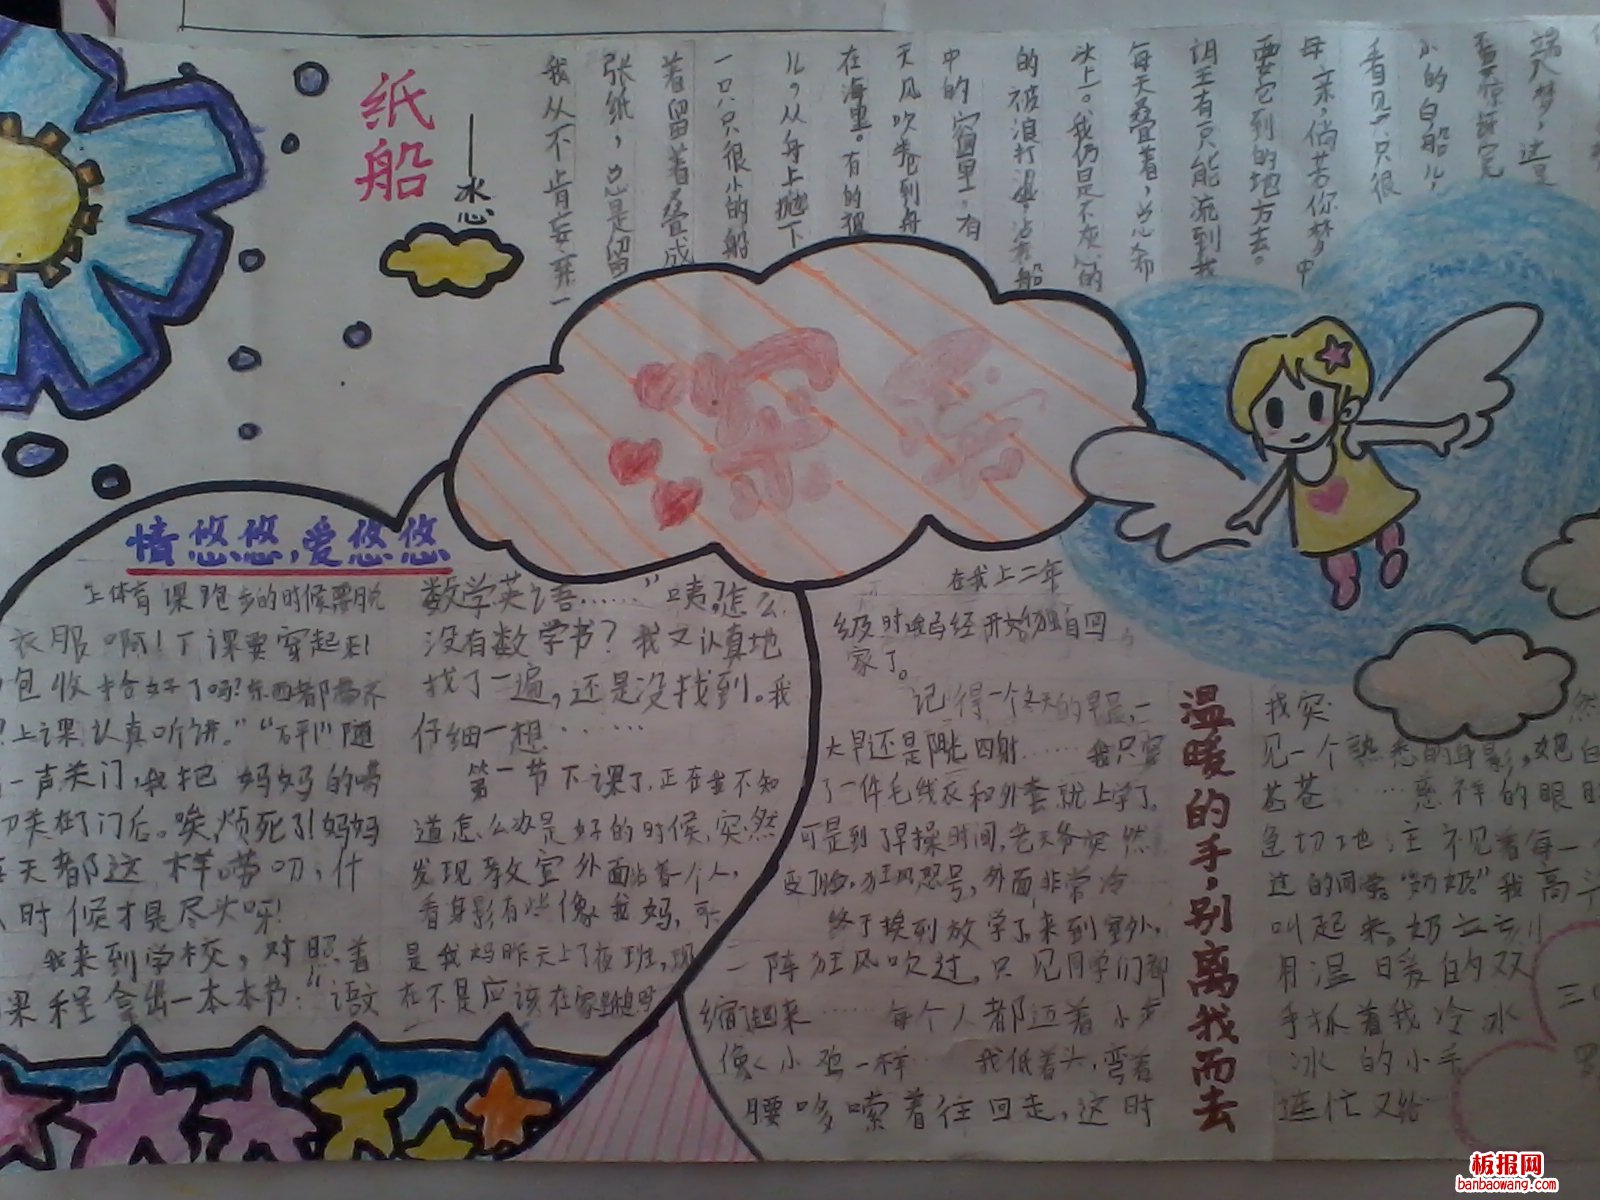 纸船
——冰心
我从不肯妄弃一
张纸,总是留
着留着叠成
一只只很小的船
儿。从舟上抛下
在海里。有的被
天风吹卷到舟
中的窗里。有
的被浪打湿沾在船
头上。我仍是不灰心的
每天叠着,总希
望有只能流到我
要它到的地方去。
母亲,倘若你梦中
看见一只很
小的白船儿,
情悠悠,爱悠悠
上体育课跑步的时候要脱
衣服啊!下课要穿起来!
包收拾好了吗?东西都带齐
上课认真听讲。”“砰!”随
一声关门,我把妈妈的唠
叨关在了门后。唉,烦死了!妈妈
每天都这样唠叨,什
时候才是尽头呀!
我来到学校,对照着
课程拿出一本本书:“语文
数学英语……”咦?怎么
没有数学书?我又认真地
找了一遍,还是没找到。我
仔细一想……
第一节下课了,正在我不知
道怎么办是好的时候,突然
发现教室外面站着一个人,
看身影有些像我妈,可
是我妈昨天上了夜班,现
在不是应该在家
深爱
在我上二年
级时
经开始独自回
家了。
记得一个冬天的早晨,一
大早还是阳光四射……我只穿
了一件毛线衣和外套就上学了。
可是到了早操时间,老天爷突然
变了脸。狂风怒号,外面非常冷
终于挨到放学了,来到室外,
一阵狂风吹过,只见同学们都
缩了起来……每个人都迈着小步
像小鸡一样 我低着头,弯着
腰哆嗦着往回走,这时
温暖的手,别离我而去
我突 然
见一个熟悉的身影,她白
苍苍……慈祥的眼
急切地注视着每一
过的同学“奶奶”我高
叫起来。奶立刻
用温暖的双
手抓着我冷冰
冰的小手
连忙又给
板报网
banbaowang.com